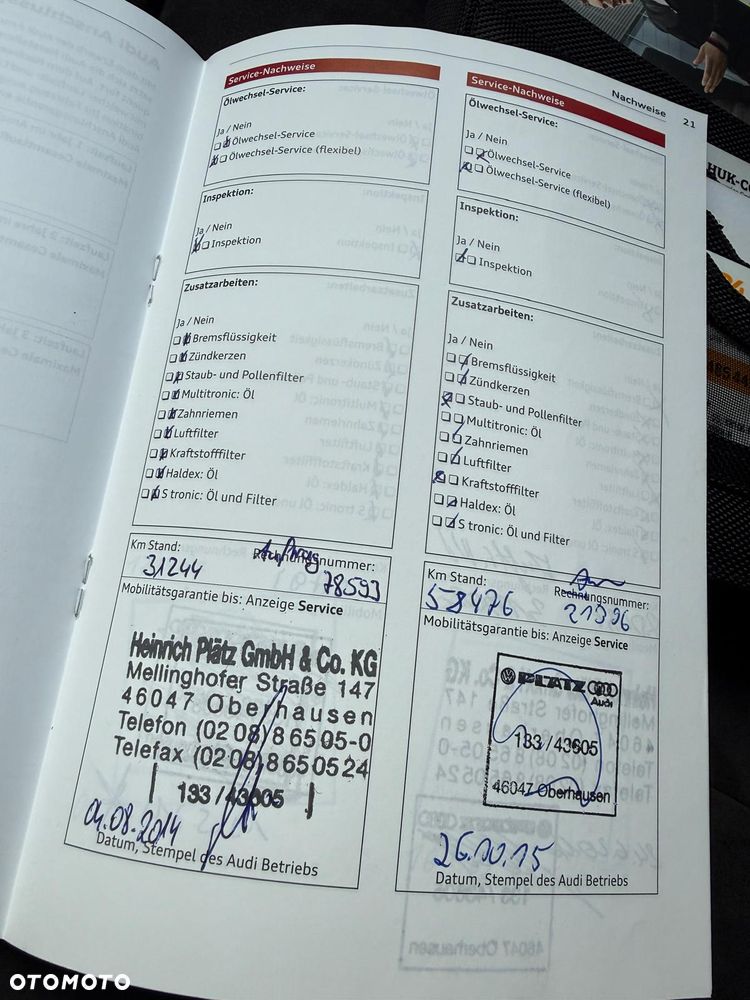 Audi Anschluss
Nachweise 21
Service-Nachweise
Ölwechsel-Service:
Ja / Nein
Ölwechsel-Service
Ölwechsel-Service (flexibel)
Inspektion:
Ja / Nein
Inspektion
Zusatzarbeiten:
Ja / Nein
Bremsflüssigkeit
Zündkerzen
Staub- und Pollenfilter
Multitronic: Öl
Zahnriemen
Luftfilter
Kraftstofffilter
Haldex: Öl
S tronic: Öl und Filter
Km Stand: Rechnungsnummer:
31244 78593
Mobilitätsgarantie bis: Anzeige Service
Heinrich Plätz GmbH & Co. KG
Mellinghofer Straße 147
46047 Oberhausen
Telefon (02 08) 8 65 05-0
Telefax (02 08) 8 65 05 24
133 / 43605
04.08.2014
Datum, Stempel des Audi Betriebs
Service-Nachweise
Ölwechsel-Service:
Ja / Nein
Ölwechsel-Service
Ölwechsel-Service (flexibel)
Inspektion:
Ja / Nein
Inspektion
Zusatzarbeiten:
Ja / Nein
Bremsflüssigkeit
Zündkerzen
Staub- und Pollenfilter
Multitronic: Öl
Zahnriemen
Luftfilter
Kraftstofffilter
Haldex: Öl
S tronic: Öl und Filter
Km Stand: Rechnungsnummer:
58476 21996
Mobilitätsgarantie bis: Anzeige Service
PLÄTZ
Audi
133 / 43605
46047 Oberhausen
26.10.15
Datum, Stempel des Audi Betriebs
HUK-C
OTOMOTO